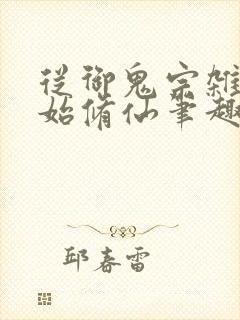 从御鬼宗雜
始脩仙筆趣
邱春雷